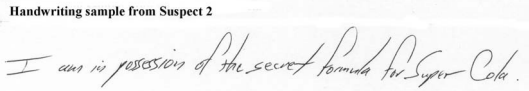 Handwriting sample from Suspect 2
I am in possession of the secret formula for Super Cola.